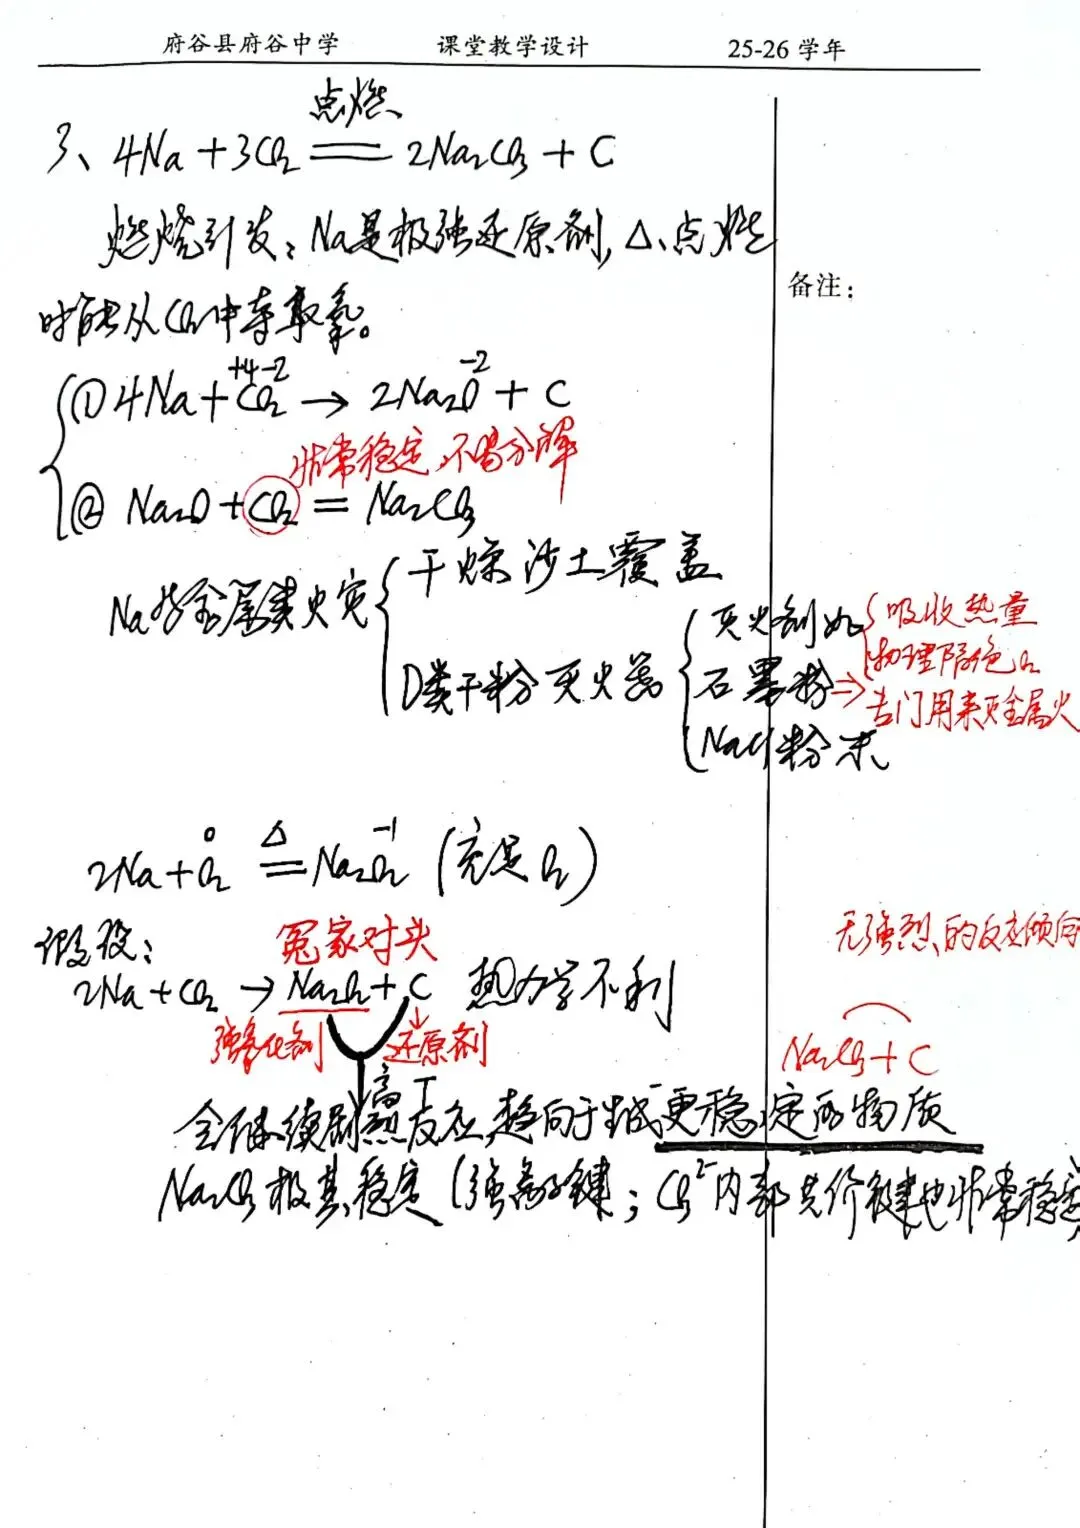 府谷县府谷中学 课堂教学设计 25-26 学年
点燃
3、4Na+3CO₂══2Na₂CO₃+C
燃烧引发：Na是极强还原剂，△、点燃
时能从CO₂中夺取氧。
备注：
+4 -2 -2
①4Na+CO₂→2Na₂O+C
非常稳定，不易分解
②Na₂O+CO₂=Na₂CO₃
干燥沙土覆盖
Na等金属类火灾
D类干粉灭火器
灭火剂如 吸收热量
石墨粉→ 物理隔绝O₂
专门用来灭金属火
NaCl粉末
0 △ -1
2Na+O₂══Na₂O₂（充足O₂）
假设： 冤家对头 无强烈的反应倾向
2Na+CO₂→Na₂O₂+C 热力学不利
强氧化剂 还原剂 Na₂CO₃+C
高T
会继续剧烈反应，趋向于生成更稳定的物质
Na₂CO₃极其稳定（强离子键；CO₃²⁻内部共价键也非常稳定